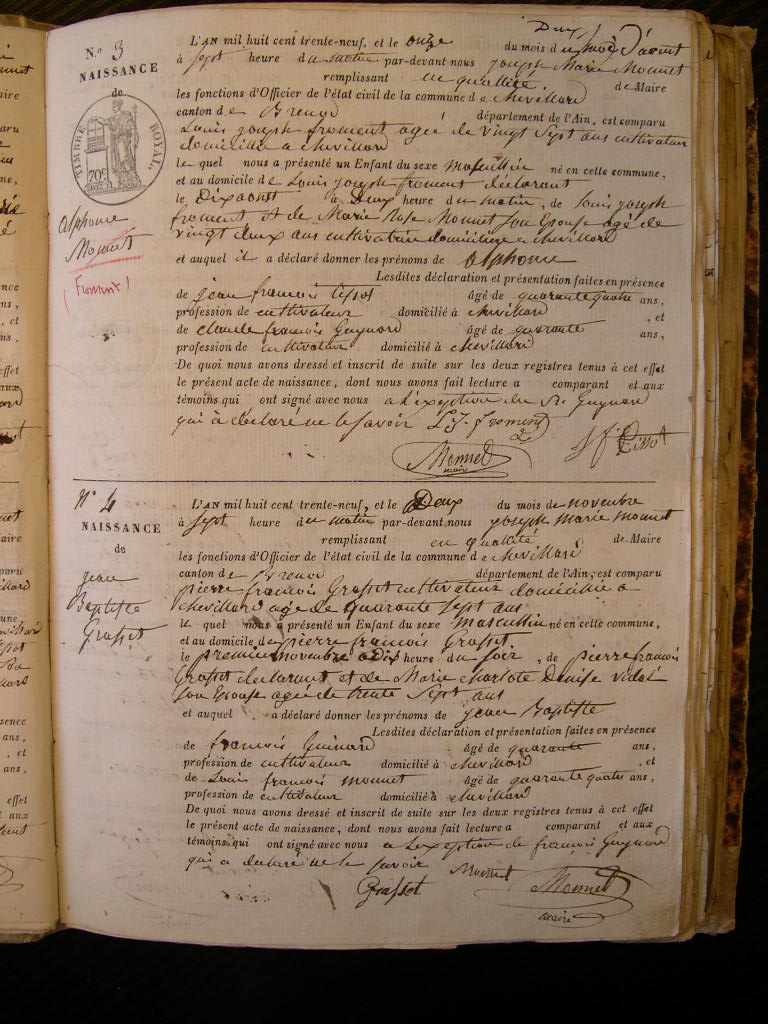 N.º 3
NAISSANCE
de
TIMBRE ROYAL
70 c
alphonse
Monnet
(Froment)
L'AN mil huit cent trente-neuf, et le onze du mois d'aout
à sept heure du matin par-devant nous joseph Marie Monnet
remplissant en quallité de Maire
les fonctions d'Officier de l'état civil de la commune de chevillard
canton de Brenod département de l'Ain, est comparu
Louis joseph froment agée de vingt Sept ans cultivateur
domicillié a chevillard
le quel nous a présenté un Enfant du sexe masculin né en cette commune,
et au domicile de Louis joseph froment declarant
le Dix aout à Deux heure du matin, de louis joseph
froment et de Marie Rose Monnet son Epouse agé de
vingt deux ans cultivatrice domiciliée a chevillard
et auquel il a déclaré donner les prénoms de alphonse
Lesdites déclaration et présentation faites en présence
de jean francois tissot âgé de quarante quatre ans,
profession de cultivateur domicilié à chevillard , et
de claude francois Guynard âgé de quarante ans,
profession de cultivateur domicilié à chevillard
De quoi nous avons dressé et inscrit de suite sur les deux registres tenus à cet effet
le présent acte de naissance, dont nous avons fait lecture a comparant et aux
témoins qui ont signé avec nous a l'exeption du Sr. Guynard
qui à declaré ne le savoir L. J. froment
Monnet J f Tissot
maire
Nº 4
NAISSANCE
de
jean
Baptiste
Grosset
L'AN mil huit cent trente-neuf, et le Deux du mois de novembre
à sept heure du matin par-devant nous joseph marie monnet
remplissant en quallité de Maire
les fonctions d'Officier de l'état civil de la commune de chevillard
canton de Brenod département de l'Ain, est comparu
pierre francois Grosset cultivateur domicillié a
chevillard age de quarante sept ans
le quel nous à présenté un Enfant du sexe masculin né en cette commune,
et au domicile de pierre francois Grosset
le premier novembre a Dix heure du soir , de pierre francois
Grosset declarant et de Marie charlote Denise vidal
son Epouse agée de trente Sept ans
et auquel a déclaré donner les prénoms de jean Baptiste
Lesdites déclaration et présentation faites en présence
de francois Guinard âgé de quarante ans,
profession de cultivateur domicilié à chevillard , et
de Louis francois monnet âgé de quarante quatre ans,
profession de cultivateur domicilié à chevillard
De quoi nous avons dressé et inscrit de suite sur les deux registres tenus à cet effet
le présent acte de naissance, dont nous avons fait lecture a comparant et aux
témoins qui ont signé avec nous a L'exeption de francois Guynard
qui a declaré ne le savoir Monnet
Grosset Monnet
maire